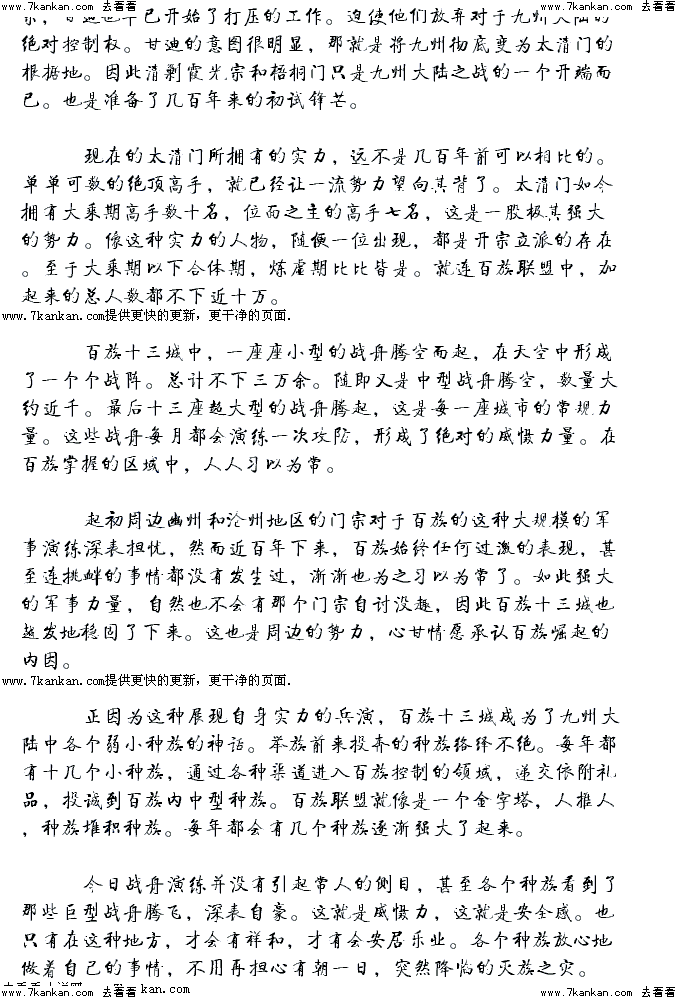 www.7kankan.com 去看看 www.7kankan.com 去看看 www.7kankan.com 去看看 www.7kankan.com 去看看
已开始了打压的工作。迫使他们放弃对于九州大陆的
绝对控制权。甘迪的意图很明显，那就是将九州彻底变为太清门的
根据地。因此清剿霞光宗和梧桐门只是九州大陆之战的一个开端而
已。也是准备了几百年来的初试锋芒。
现在的太清门所拥有的实力，远不是几百年前可以相比的。
单单可数的绝顶高手，就已经让一流势力望向其背了。太清门如今
拥有大乘期高手数十名，位面之主的高手七名，这是一股极其强大
的势力。像这种实力的人物，随便一位出现，都是开宗立派的存在
。至于大乘期以下合体期，炼虚期比比皆是。就连百族联盟中，加
起来的总人数都不下近十万。
www.7kankan.com提供更快的更新，更干净的页面.
百族十三城中，一座座小型的战舟腾空而起，在天空中形成
了一个个战阵。总计不下三万余。随即又是中型战舟腾空，数量大
约近千。最后十三座超大型的战舟腾起，这是每一座城市的常规力
量。这些战舟每月都会演练一次攻防，形成了绝对的威慑力量。在
百族掌握的区域中，人人习以为常。
起初周边幽州和沧州地区的门宗对于百族的这种大规模的军
事演练深表担忧，然而近百年下来，百族始终任何过激的表现，甚
至连挑衅的事情都没有发生过，渐渐也为之习以为常了。如此强大
的军事力量，自然也不会有那个门宗自讨没趣，因此百族十三城也
越发地稳固了下来。这也是周边的势力，心甘情愿承认百族崛起的
内因。
www.7kankan.com提供更快的更新，更干净的页面.
正因为这种展现自身实力的兵演，百族十三城成为了九州大
陆中各个弱小种族的神话。举族前来投奔的种族络绎不绝。每年都
有十几个小种族，通过各种渠道进入百族控制的领域，递交依附礼
品，投诚到百族内中型种族。百族联盟就像是一个金字塔，人推人
，种族堆积种族。每年都会有几个种族逐渐强大了起来。
今日战舟演练并没有引起常人的侧目，甚至各个种族看到了
那些巨型战舟腾飞，深表自豪。这就是威慑力，这就是安全感。也
只有在这种地方，才会有祥和，才有会安居乐业。各个种族放心地
做着自己的事情，不用再担心有朝一日，突然降临的灭族之灾。
kan.com
www.7kankan.com 去看看 www.7kankan.com 去看看 www.7kankan.com 去看看 www.7kankan.com 去看看